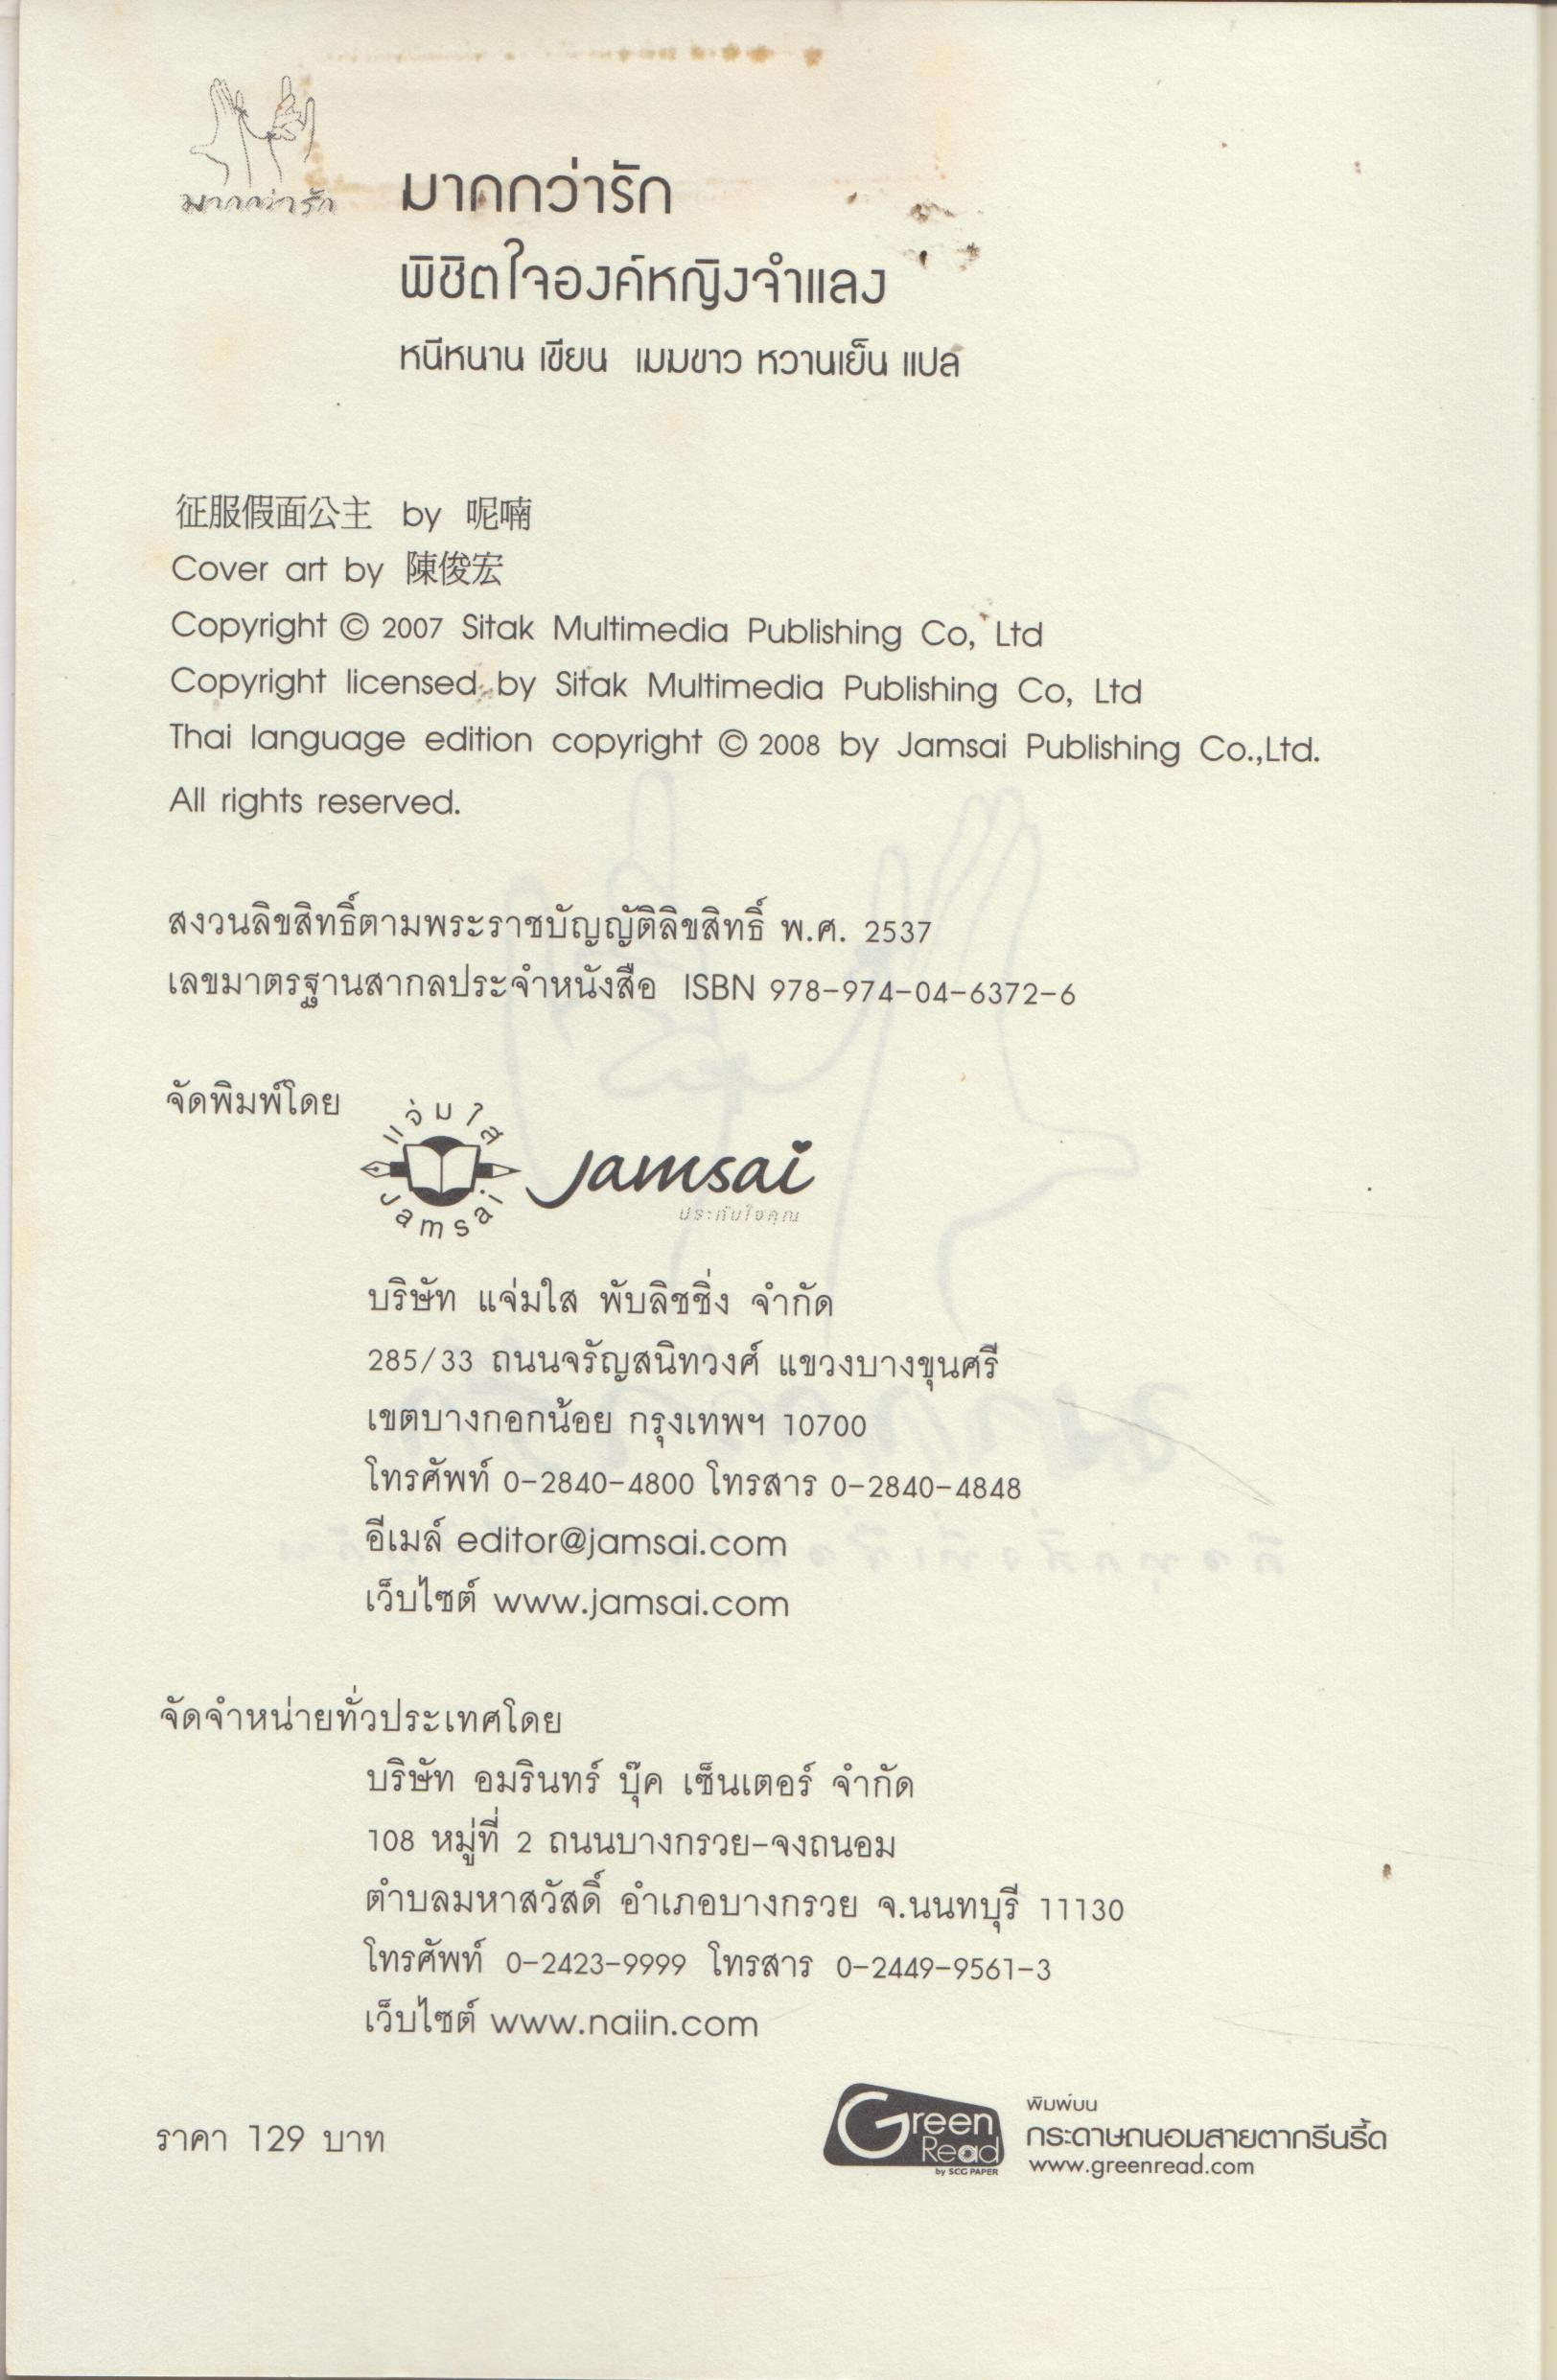 มากกว่ารัก
มากกว่ารัก
พิชิตใจองค์หญิงจำแลง
หนีหนาน เขียน เมมขาว หวานเย็น แปล
征服假面公主 by 呢喃
Cover art by 陳俊宏
Copyright © 2007 Sitak Multimedia Publishing Co, Ltd
Copyright licensed by Sitak Multimedia Publishing Co, Ltd
Thai language edition copyright © 2008 by Jamsai Publishing Co.,Ltd.
All rights reserved.
สงวนลิขสิทธิ์ตามพระราชบัญญัติลิขสิทธิ์ พ.ศ. 2537
เลขมาตรฐานสากลประจำหนังสือ ISBN 978-974-04-6372-6
จัดพิมพ์โดย
แจ่มใส
jamsai
Jamsai
ประทับใจคุณ
บริษัท แจ่มใส พับลิชชิ่ง จำกัด
285/33 ถนนจรัญสนิทวงศ์ แขวงบางขุนศรี
เขตบางกอกน้อย กรุงเทพฯ 10700
โทรศัพท์ 0-2840-4800 โทรสาร 0-2840-4848
อีเมล์ editor@jamsai.com
เว็บไซต์ www.jamsai.com
จัดจำหน่ายทั่วประเทศโดย
บริษัท อมรินทร์ บุ๊ค เซ็นเตอร์ จำกัด
108 หมู่ที่ 2 ถนนบางกรวย-จงถนอม
ตำบลมหาสวัสดิ์ อำเภอบางกรวย จ.นนทบุรี 11130
โทรศัพท์ 0-2423-9999 โทรสาร 0-2449-9561-3
เว็บไซต์ www.naiin.com
ราคา 129 บาท
Green
Read
by SCG PAPER
พิมพ์บน
กระดาษถนอมสายตากรีนรี้ด
www.greenread.com